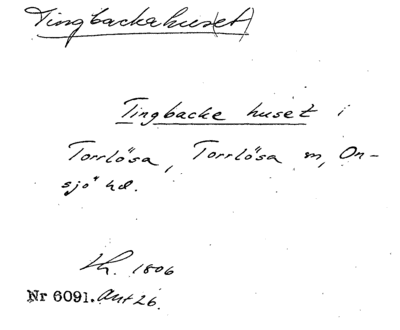 Tingbackahuset)
Tingbacke huset i
Torrlösa, Torrlösa m, On-
sjö hd.
Lh. 1806
Nr 6091. Ant 26.